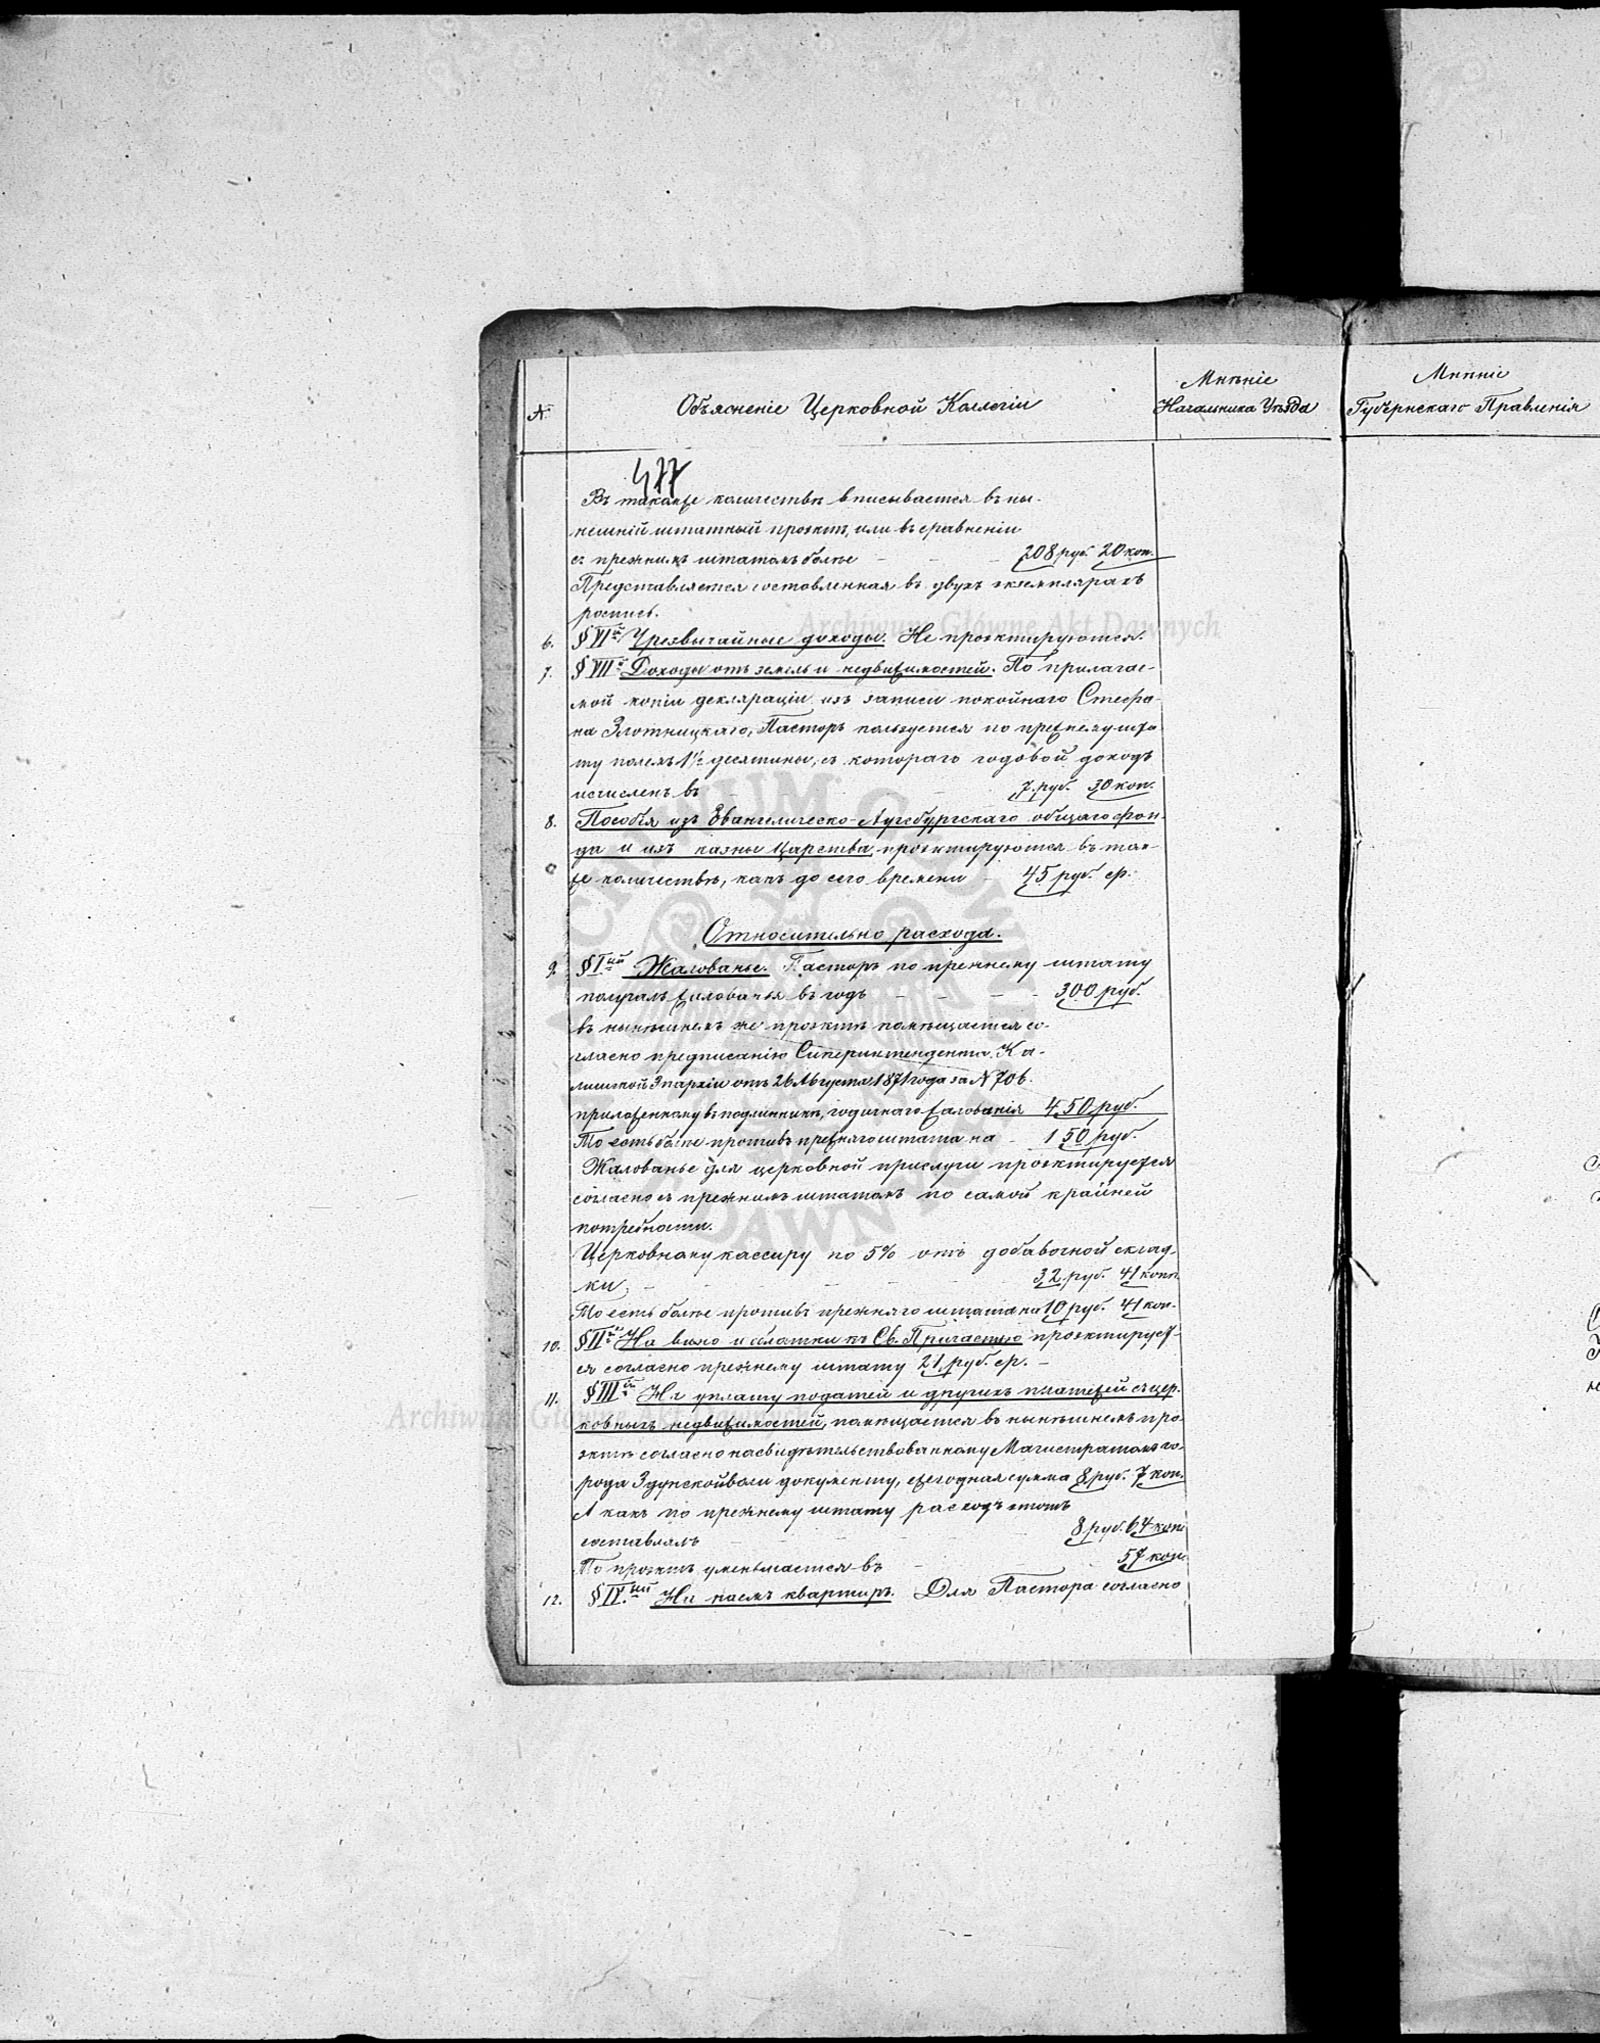 №
Объясненіе Церковной Коллегіи
Мнѣніе
Начальника Уѣзда
Мнѣніе
Губернскаго Правленія
477
Въ такомже количествѣ вписывается въ ны-
нешній штатный проэктъ, или въ сравненіи
съ прежнимъ штатомъ болѣе - - - 208 руб. 20 коп.
Представляется составленная въ двухъ экземплярахъ
роспись.
6. § VI й Чрезвычайные доходы. Не проэктируются.
7. § VII й Доходы отъ земель и недвижимостей. По прилагае-
мой копіи декляраціи изъ записи покойнаго Стефа-
на Злотницкаго, Пасторъ пользуется по прежнему шта-
ту полемъ 1½ десятины, съ котораго годовой доходъ
исчисленъ въ - - - 7 руб. 30 коп.
8. Пособія изъ Евангелическо-Аугсбургскаго общаго фон-
да и изъ казны Царства, проэктируются въ так-
же количествѣ, какъ до сего времени - 45 руб. ср.
Относительно расхода.
9. § I ый Жалованье. Пасторъ по прежнему штату
получалъ жалованья въ годъ - - - - 300 руб.
въ нынѣшнемъ же проэктѣ помѣщается со-
гласно предписанію Суперинтендента Ка-
лишской Эпархіи отъ 26 Августа 1871 года за № 706.
приложенному въ подлинникѣ, годичнаго жалованія 450 руб.
То есть болѣе противъ прежняго штата на - 150 руб.
Жалованье для церковной прислуги проэктируется
согласно съ прежнимъ штатомъ по самой крайней
потребности.
Церковному кассиру по 5% отъ добавочной склад-
ки, - - - - - - 32 руб. 41 коп.
То есть болѣе противъ прежняго штата на 10 руб. 41 коп.
10. § II й На вино и облатки къ Св. Причастію проэктирует-
ся согласно прежнему штату 21 руб. ср. -
11. § III й На уплату податей и другихъ платежей съ цер-
ковныхъ недвижимостей, помѣщается въ нынѣшнемъ про-
эктѣ согласно засвидѣтельствованному Магистратомъ го-
рода Здунскойволи документу, ежегодная сумма 8 руб. 7 коп.
А какъ по прежнему штату расходъ этотъ
составлялъ - - - 8 руб. 64 коп.
По проэктѣ уменьшается въ - - 57 коп.
12. § IV. ый На наемъ квартиръ. Для Пастора согласно
Archiwum Główne Akt Dawnych
Archiwum Gł